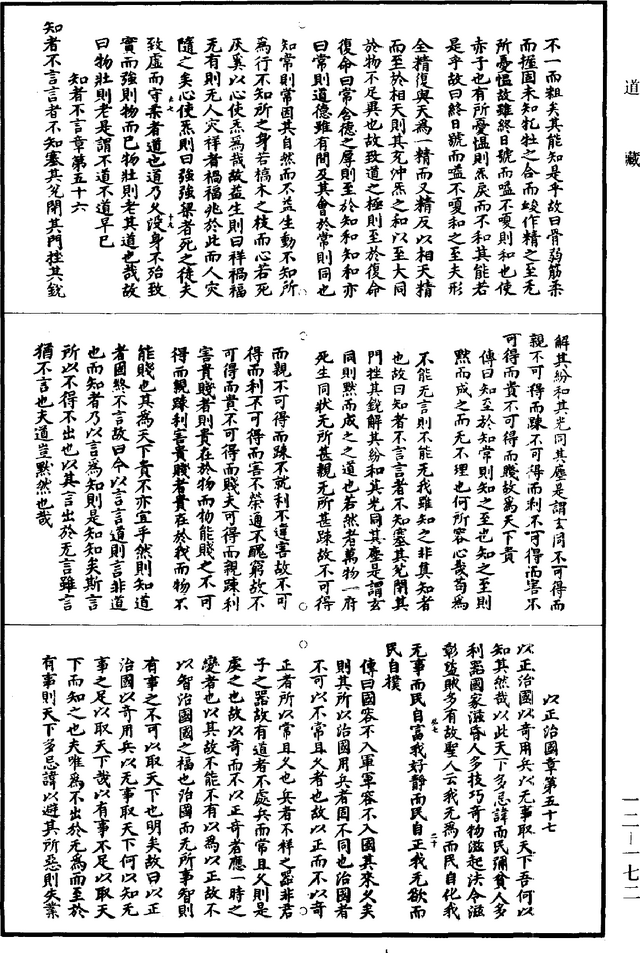 道藏
不一而粗矣其能知是乎故曰骨弱筋柔
而握固未知牝牡之合而峻作精之至无
所憂慍故雖終日號而嗌不嗄則和也使
赤子也有所憂慍則炁戾而不和其能若
是乎故曰終日號而嗌不嗄和之至夫形
全精復與天為一精而又精反以相天精
而至於相天則其充沖炁之和以至大同
於物不足異也故致道之極則至於復命
復命曰常含德之厚則至於知和知和亦
曰常則道德雖有間及其會於常則同也
知常則常因其自然而不益生動不知所
為行不知所之身若槁木之枝而心若死
灰奚以心使炁為哉故益生則曰祥禍福
无有則无人灾祥者禍福兆於此而人灾
隨之矣心使炁則曰強強梁者死之徒夫
致虛而守柔者道也道乃久沒身不殆致
實而強則物而已物壯則老其道也哉故
曰物壯則老是謂不道不道早已
知者不言章第五十六
知者不言言者不知塞其兌閉其門挫其銳
解其紛和其光同其塵是謂玄同不可得而
親不可得而踈不可得而利不可得而害不
可得而貴不可得而賤故為天下貴
傳曰知至於知常則知之至也知之至則
默而成之而无不理也何所容心哉苟為
不能无言則不能无我雖知之非真知者
也故曰知者不言言者不知塞其兌閉其
門挫其銳解其紛和其光同其塵是謂玄
同則默而成之之道也若然者萬物一府
死生同狀无所甚親无所甚踈故不可得
而親不可得而踈不就利不違害故不可
得而利不可得而害不榮通不醜窮故不
可得而貴不可得而賤夫可得而親踈利
害貴賤者則貴在於物而物能賤之不可
得而親踈利害貴賤者貴在於我而物不
能賤也其為天下貴不亦宜乎然則知道
者國終不言故曰今以言言道則言非道
也而知者乃以言為知則是知知矣斯言
所以不得不出也以其言出於无言雖言
猶不言也夫道豈默然也哉
以正治國章第五十七
以正治國以奇用兵以无事取天下吾何以
知其然哉以此天下多忌諱而民彌貧人多
利器國家滋昏人多技巧奇物滋起法令滋
彰盜賊多有故聖人云我无為而民自化我
无事而民自富我好靜而民自正我无欲而
民自樸
傳曰國容不入軍軍容不入國其來久矣
則其所以治國用兵者固不同也治國者
不可以不常且久者也故以正而不以奇
正者所以常且久也兵者不祥之器非君
子之器故有道者不處兵而常且久則是
處之也故以奇而不以正奇者應一時之
變者也以其故不能不有以為以正故不
以智治國國之福也治國而无所事智則
有事之不可以取天下也明矣故曰以正
治國以奇用兵以无事取天下何以知无
事之足以取天下哉以有事不足以取天
下而知之也夫唯為不出於无為而至於
有事則天下多忌諱以避其所惡則失業
一二—一七二